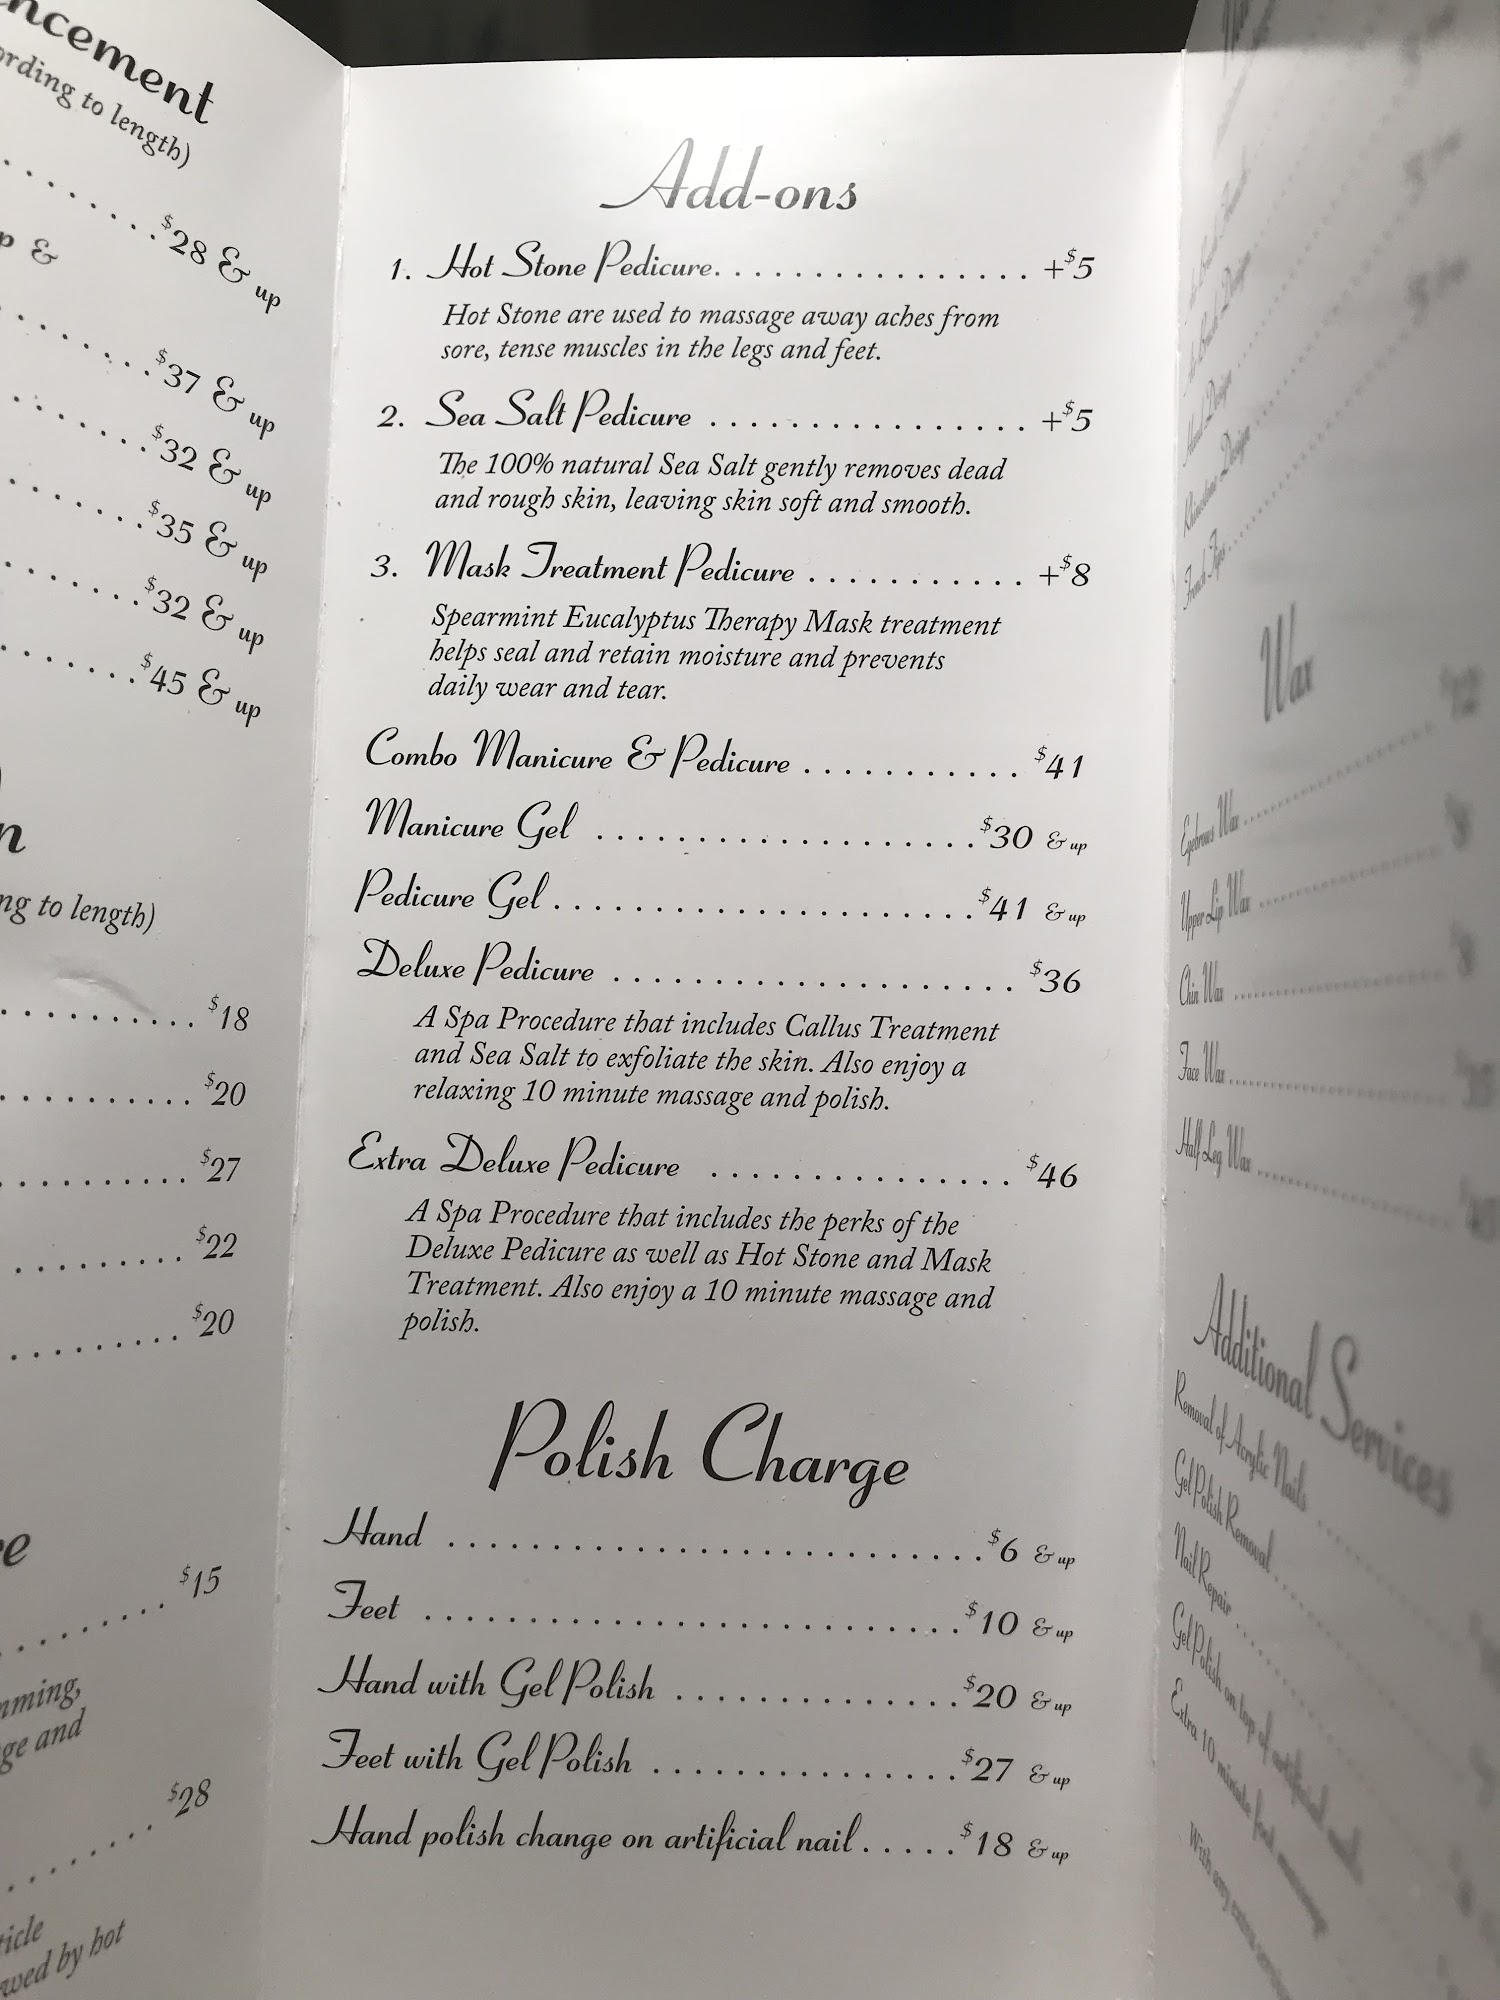 ncement
ording to length)
$28 & up
p &
$37 & up
$32 & up
$35 & up
$32 & up
$45 & up
n
ng to length)
$18
$20
$27
$22
$20
e
$15
mming,
ge and
$28
ticle
wed by hot
Add-ons
1. Hot Stone Pedicure. . . . . . . . . . . . . . . . +$5
Hot Stone are used to massage away aches from
sore, tense muscles in the legs and feet.
2. Sea Salt Pedicure . . . . . . . . . . . . . . . . +$5
The 100% natural Sea Salt gently removes dead
and rough skin, leaving skin soft and smooth.
3. Mask Treatment Pedicure . . . . . . . . . . . +$8
Spearmint Eucalyptus Therapy Mask treatment
helps seal and retain moisture and prevents
daily wear and tear.
Combo Manicure & Pedicure . . . . . . . . . . . $41
Manicure Gel . . . . . . . . . . . . . . . . . . . $30 & up
Pedicure Gel . . . . . . . . . . . . . . . . . . . . . $41 & up
Deluxe Pedicure . . . . . . . . . . . . . . . . . . . . $36
A Spa Procedure that includes Callus Treatment
and Sea Salt to exfoliate the skin. Also enjoy a
relaxing 10 minute massage and polish.
Extra Deluxe Pedicure . . . . . . . . . . . . . . . $46
A Spa Procedure that includes the perks of the
Deluxe Pedicure as well as Hot Stone and Mask
Treatment. Also enjoy a 10 minute massage and
polish.
Polish Charge
Hand . . . . . . . . . . . . . . . . . . . . . . . . . . $6 & up
Feet . . . . . . . . . . . . . . . . . . . . . . . . . . $10 & up
Hand with Gel Polish . . . . . . . . . . . . . . $20 & up
Feet with Gel Polish . . . . . . . . . . . . . . . $27 & up
Hand polish change on artificial nail . . . . . $18 & up
Design
Design
Hand Design
Rhinestone Design
French Tips
Wax
Eyebrows Wax $12
Upper Lip Wax $8
Chin Wax $8
Face Wax
Half Leg Wax
Additional Services
Removal of Acrylic Nails
Gel Polish Removal
Nail Repair
Gel Polish on top of artificial nails
Extra 10 minute foot massage
With any